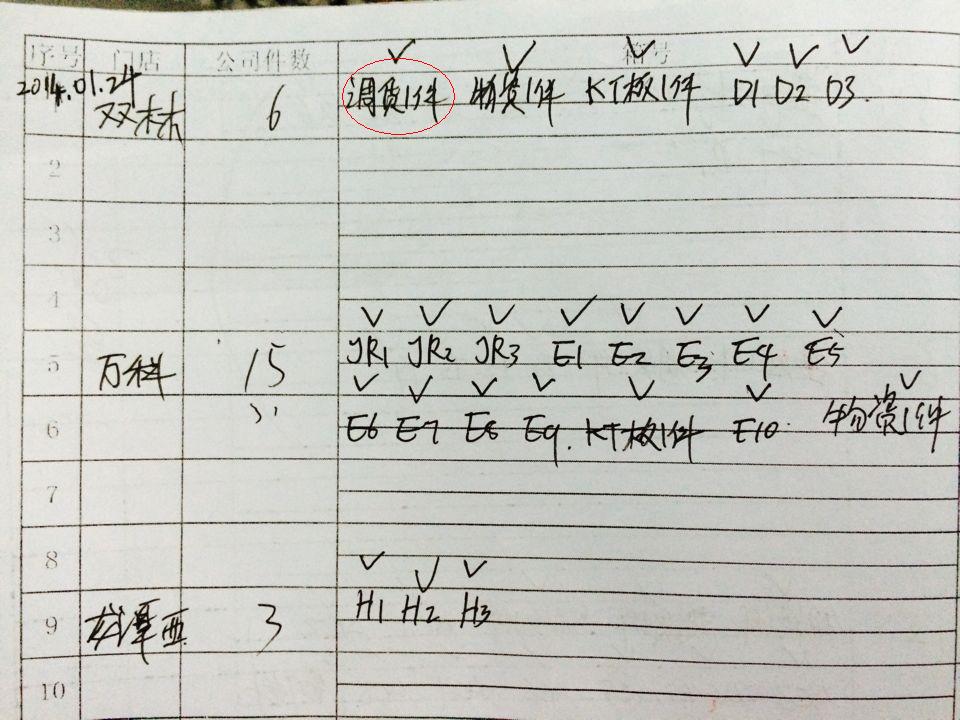 序号 门店 公司件数 箱号
2014.01.24
双林 6 调货1件 物资1件 KT板1件 D1 D2 D3.
2
3
4
5 万科 15 JR1 JR2 JR3 E1 E2 E3 E4 E5
6 E6 E7 E8 E9. KT板1件 E10 物资1件
7
8
9 龙潭西 3 H1 H2 H3
10